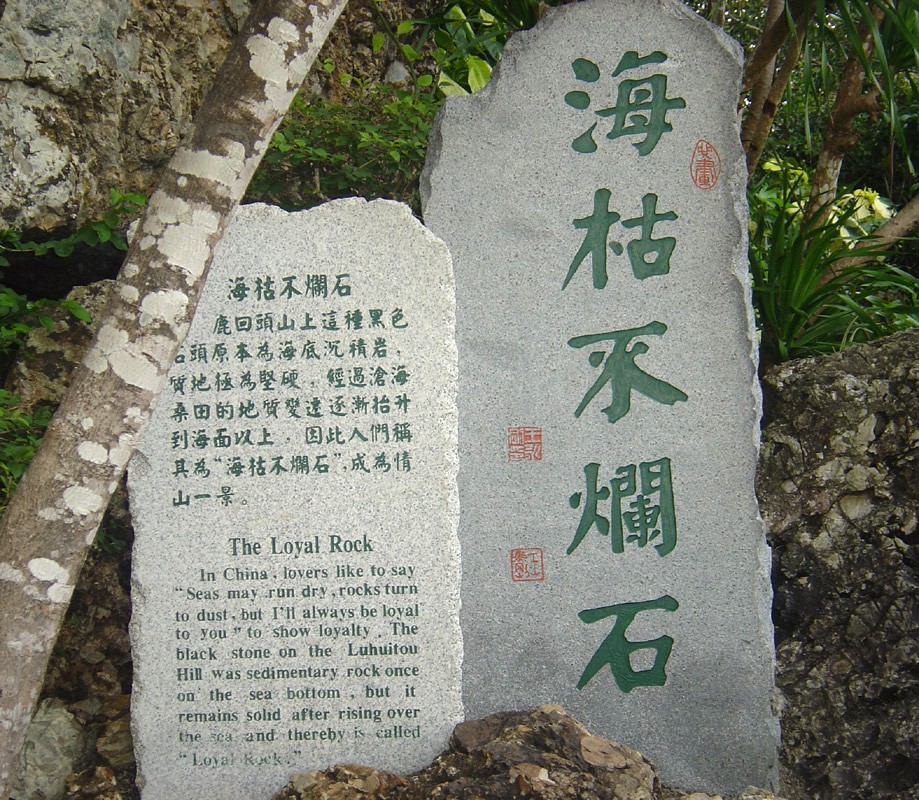 海枯不爛石
鹿回頭山上這種黑色
石頭原本為海底沉積岩，
質地極為堅硬，經過滄海
桑田的地質變遷逐漸抬升
到海面以上，因此人們稱
其為“海枯不爛石”，成為情
山一景。
The Loyal Rock
In China, lovers like to say
“Seas may run dry, rocks turn
to dust, but I'll always be loyal
to you” to show loyalty. The
black stone on the Luhuitou
Hill was sedimentary rock once
on the sea bottom, but it
remains solid after rising over
the sea and thereby is called
“Loyal Rock.”
海枯不爛石